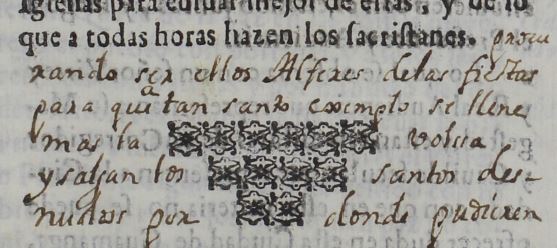 Iglesias para cuidar mejor de ellas, y de lo
que a todas horas hazen los sacristanes. procu
rando ser ellos Alferes delas fiestas
para q̃ a tan santo exemplo se llene
mas la bolsa,
y salgan los santos des-
nudos por donde pudieren